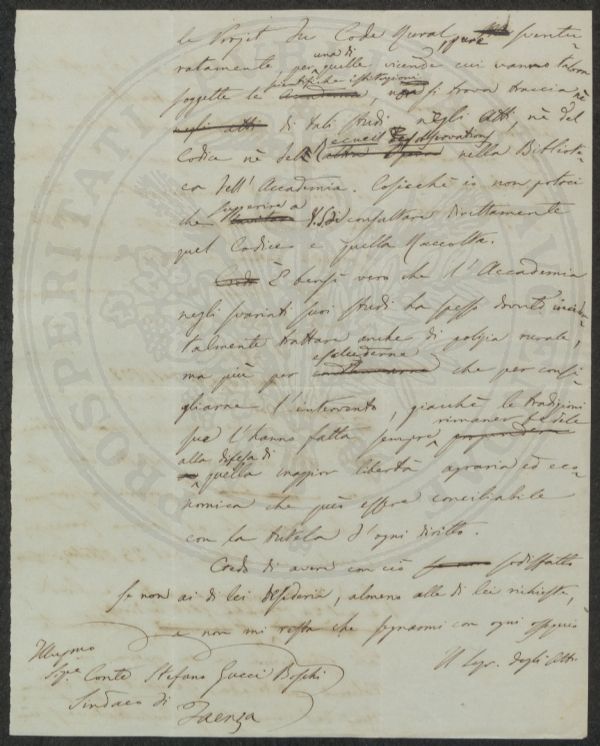 le Projet du Code Rural, pure sventu-
ratamente per una di quelle vicende cui vanno talora
soggette le scientifiche istituzioni, non si trova traccia nè
negli atti di tali studi negli Atti, nè del
Codice nè del Recueil des observations nella Bibliote-
ca dell'Accademia. Cosicchè io non potrei
che suggerire a V.S. di consultare direttamente
quel Codice e quella Raccolta.
Credo È bensì vero che l'Accademia
negli svariati suoi studi ha spesso dovuto inciden-
talmente trattare anche di polizia rurale,
ma più per escluderne che per consi-
gliarne l'intervento, giacchè le tradizioni
sue l'hanno fatta sempre rimaner fedele
alla difesa di quella maggior libertà agraria ed eco-
nomica che può essere conciliabile
con la tutela d'ogni diritto.
Credo di avere con ciò sodisfatto
se non ai di lei desiderii, almeno alle di lei richieste,
e non mi resta che segnarmi con ogni ossequio
Il Segr. degli Atti
Illmo
Sigr. Conte Stefano Gucci Boschi
Sindaco di
Faenza